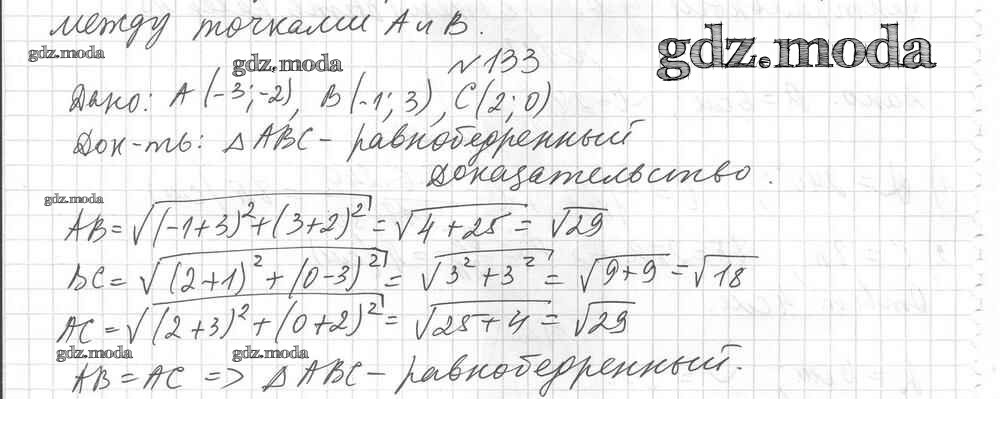 между точками A и B.
gdz.moda
gdz.moda
gdz.moda
N 133
Дано: A (-3; -2), B(-1; 3), C(2; 0)
Док-ть: △ABC - равнобедренный
Доказательство.
gdz.moda
AB = √((-1+3)² + (3+2)²) = √(4+25) = √29
BC = √((2+1)² + (0-3)²) = √(3² + 3²) = √(9+9) = √18
AC = √((2+3)² + (0+2)²) = √(25+4) = √29
gdz.moda
gdz.moda
AB = AC => △ABC - равнобедренный.